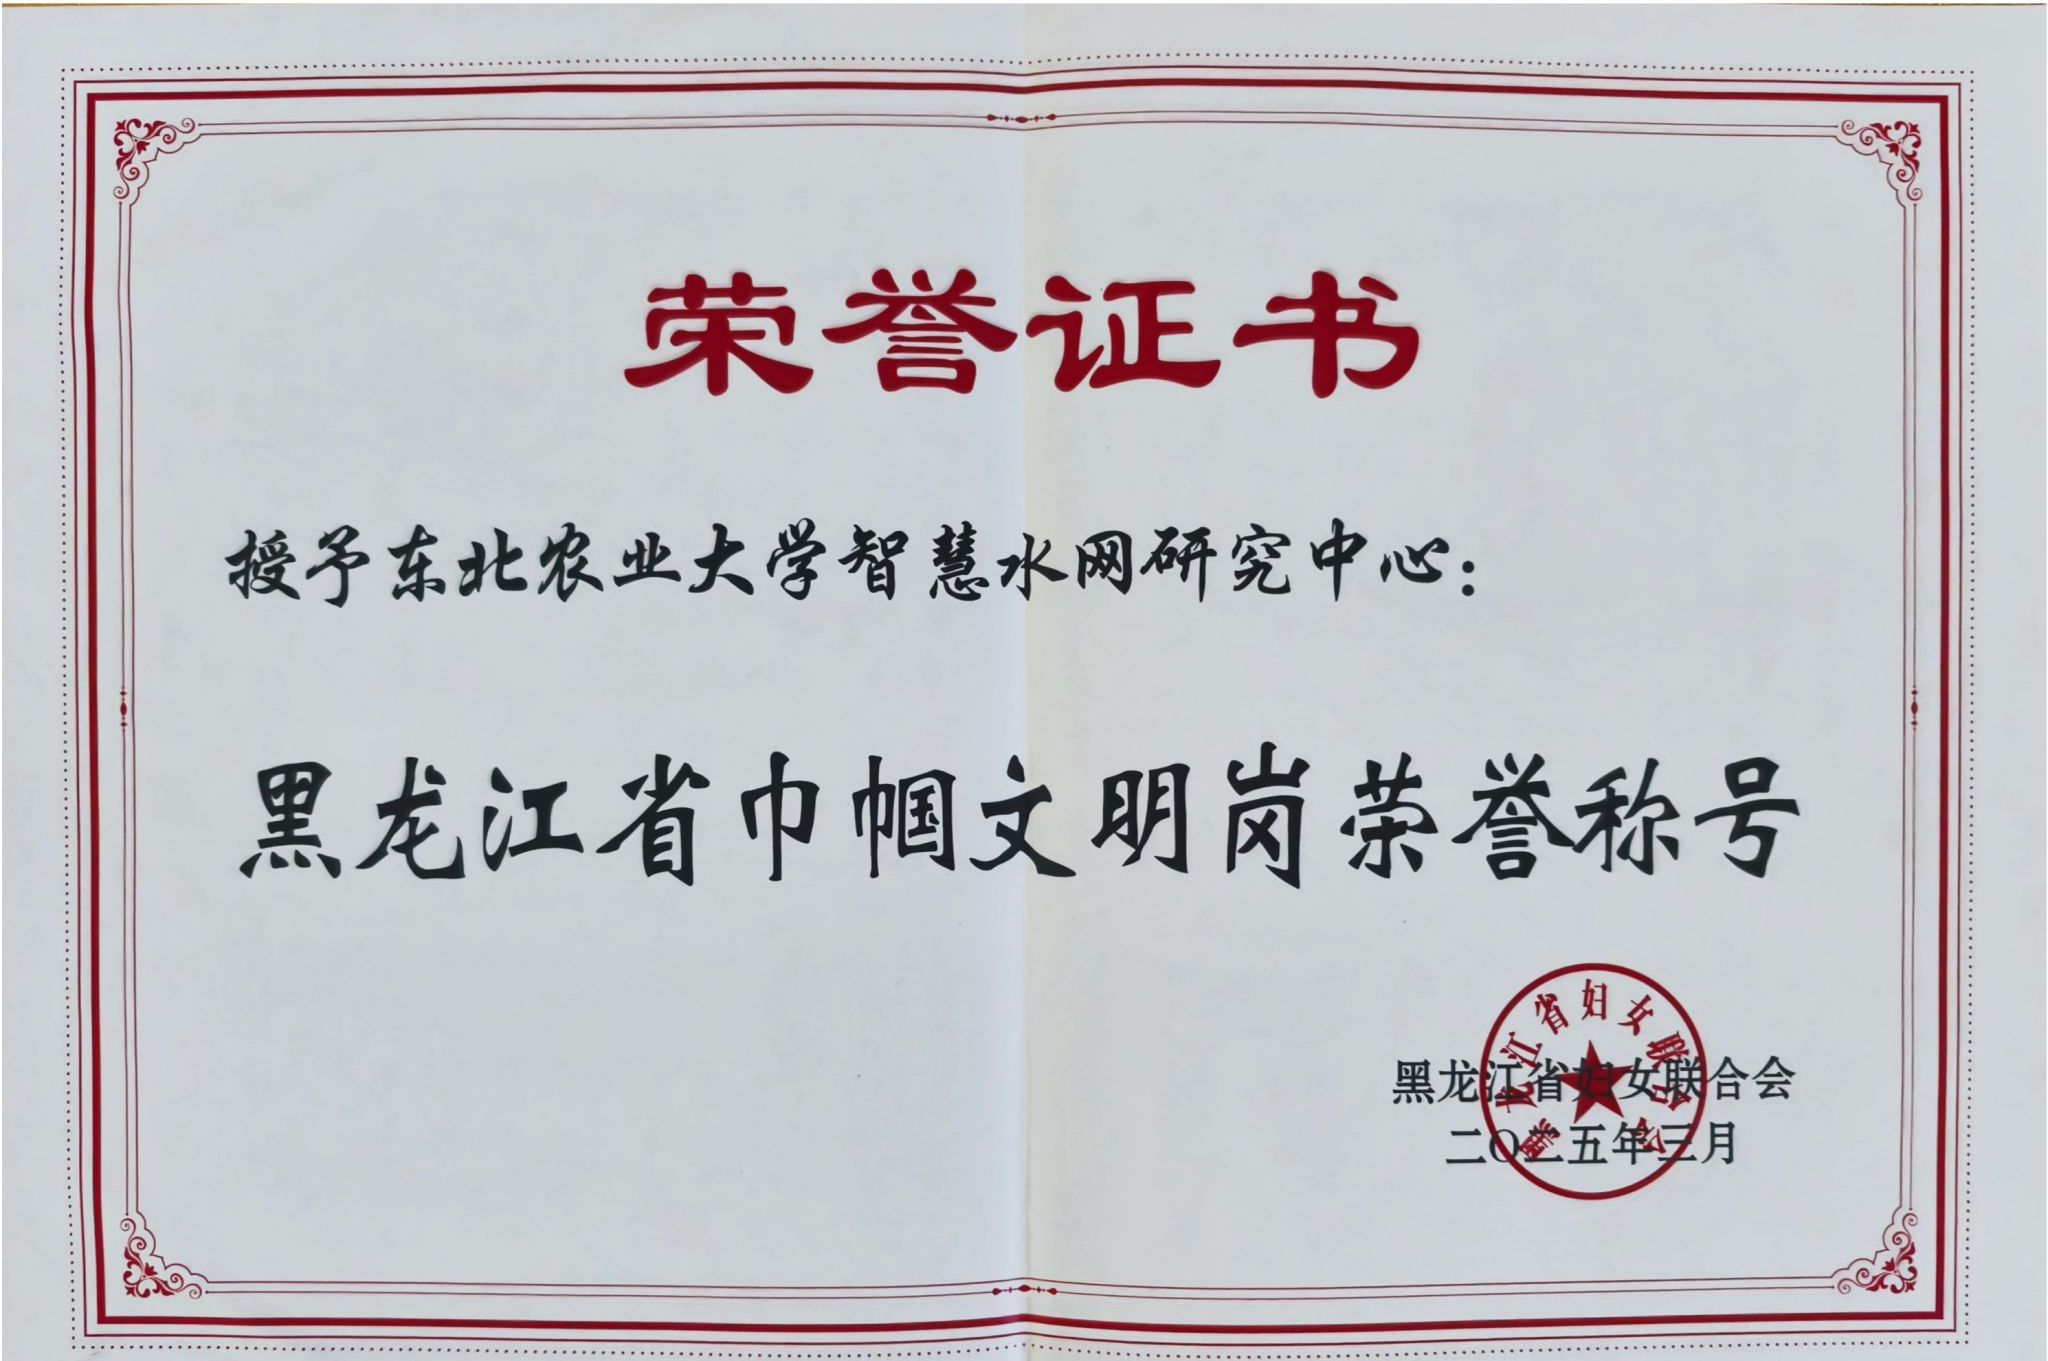 荣誉证书
授予东北农业大学智慧水网研究中心：
黑龙江省巾帼文明岗荣誉称号
黑龙江省妇女联合会
黑龙江省妇女联合会
二〇二五年三月